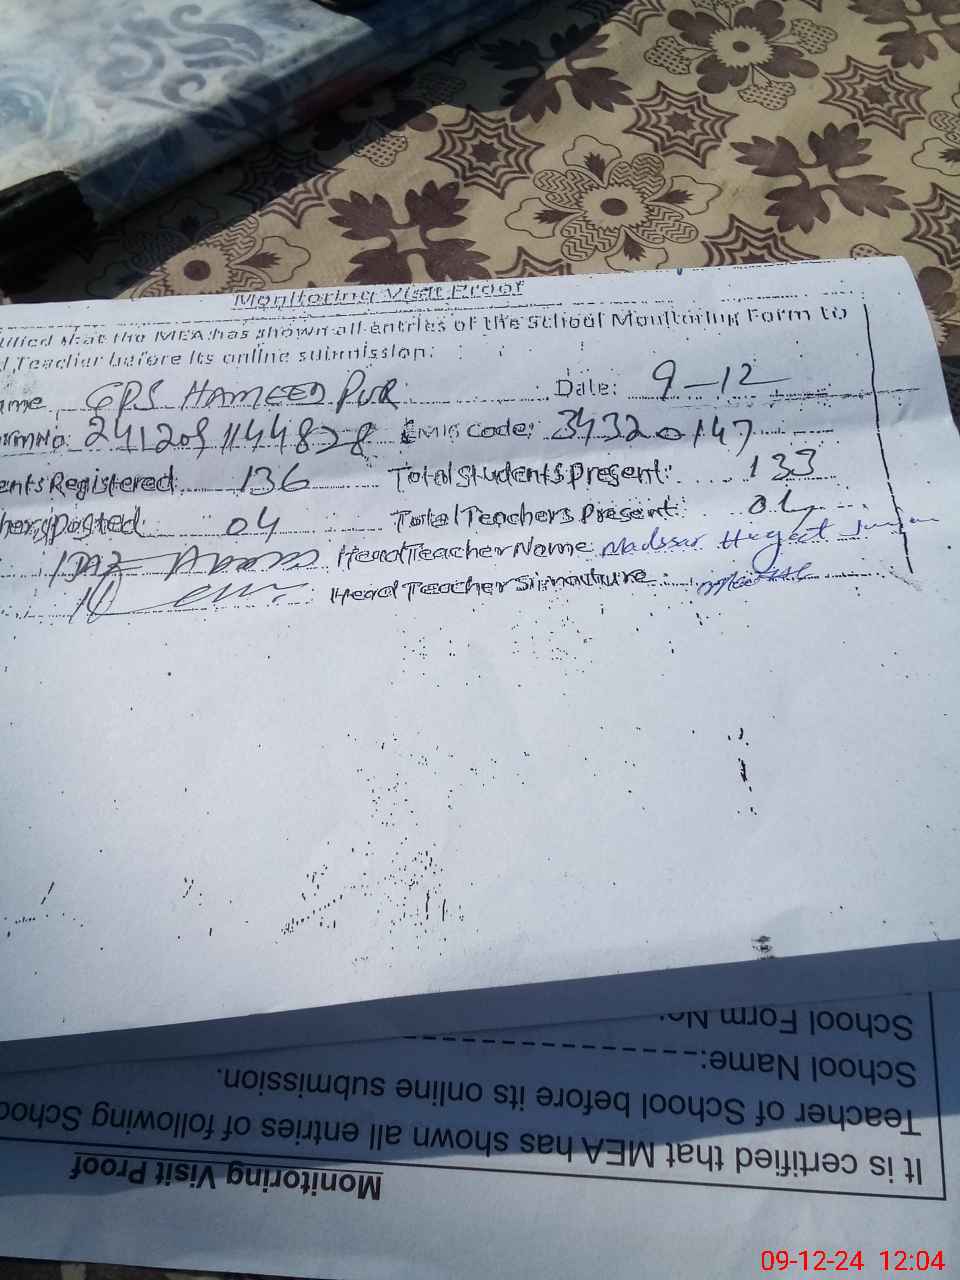 Monitoring Visit Proof
that the MEA has shown all entries of the School Monitoring Form to
Teacher before its online submission:
ame GPS HAMEED PUR Date: 9-12
No: Emis Code: 34320147
entsRegistered: 136 Total Students Present: 133
hers posted: 04 Total Teachers Present: 04
Head Teacher Name
Head Teacher Signature
It is certified that MEA has shown all entries of following Schoo
Teacher of School before its online submission.
School Name:
School Form No:
Monitoring Visit Proof
09-12-24 12:04